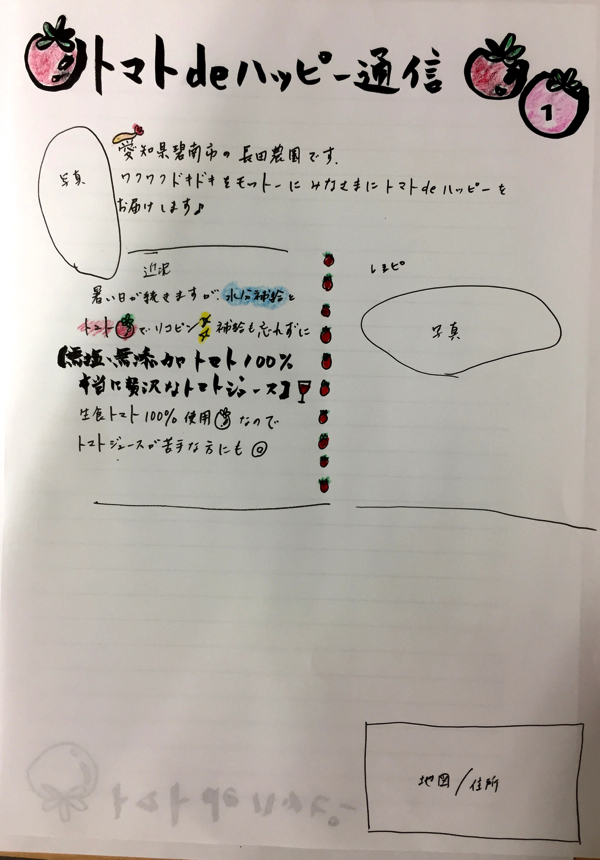 トマトdeハッピー通信
1
写真
愛知県碧南市の長田農園です。
ワクワクドキドキをモットーにみなさまにトマトdeハッピーを
お届けします♪
近況
暑い日が続きますが水分補給と
トマトでリコピン補給も忘れずに
【無塩、無添加トマト100%
本当に贅沢なトマトジュース】
生食トマト100%使用なので
トマトジュースが苦手な方にも◎
レシピ
写真
地図/住所